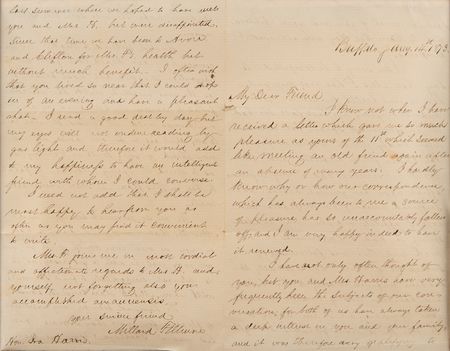 Buffalo Jany. 14th 1873.
My Dear Friend
I know not when I have
received a letter which gave me so much
pleasure as yours of the 11th which seemed
like meeting an old friend again after
an absence of many years. I hardly
know why or how our correspondence,
which has always been to me a source
of pleasure has so unaccountably fallen
off, and I am very happy indeed to have
it renewed.
I have not only often thought of
you, but you and Mrs Harris have very
frequently been the subjects of our con-
versation, for both of us have always taken
a deep interest in you and your family,
and it was therefore very gratifying to
last summer where we hoped to have met
you and Mrs. H. but were disappointed.
Since that time we have been to Avon
and Clifton for Mrs. F's health but
without much benefit. I often wish
that you lived so near that I could drop
in of an evening and have a pleasant
chat. I read a good deal by day but
my eyes will not endure reading by
gas light and therefore it would add
to my happiness to have an intelligent
friend with whom I could converse.
I need not add that I shall be
most happy to hear from you as
often as you may find it convenient
to write.
Mrs. F. joins me in most cordial
and affectionate regards to Mrs. H. and
yourself, not forgetting also your
accomplished amanuensis
your sincere friend
Millard Fillmore
Hon. Ira Harris